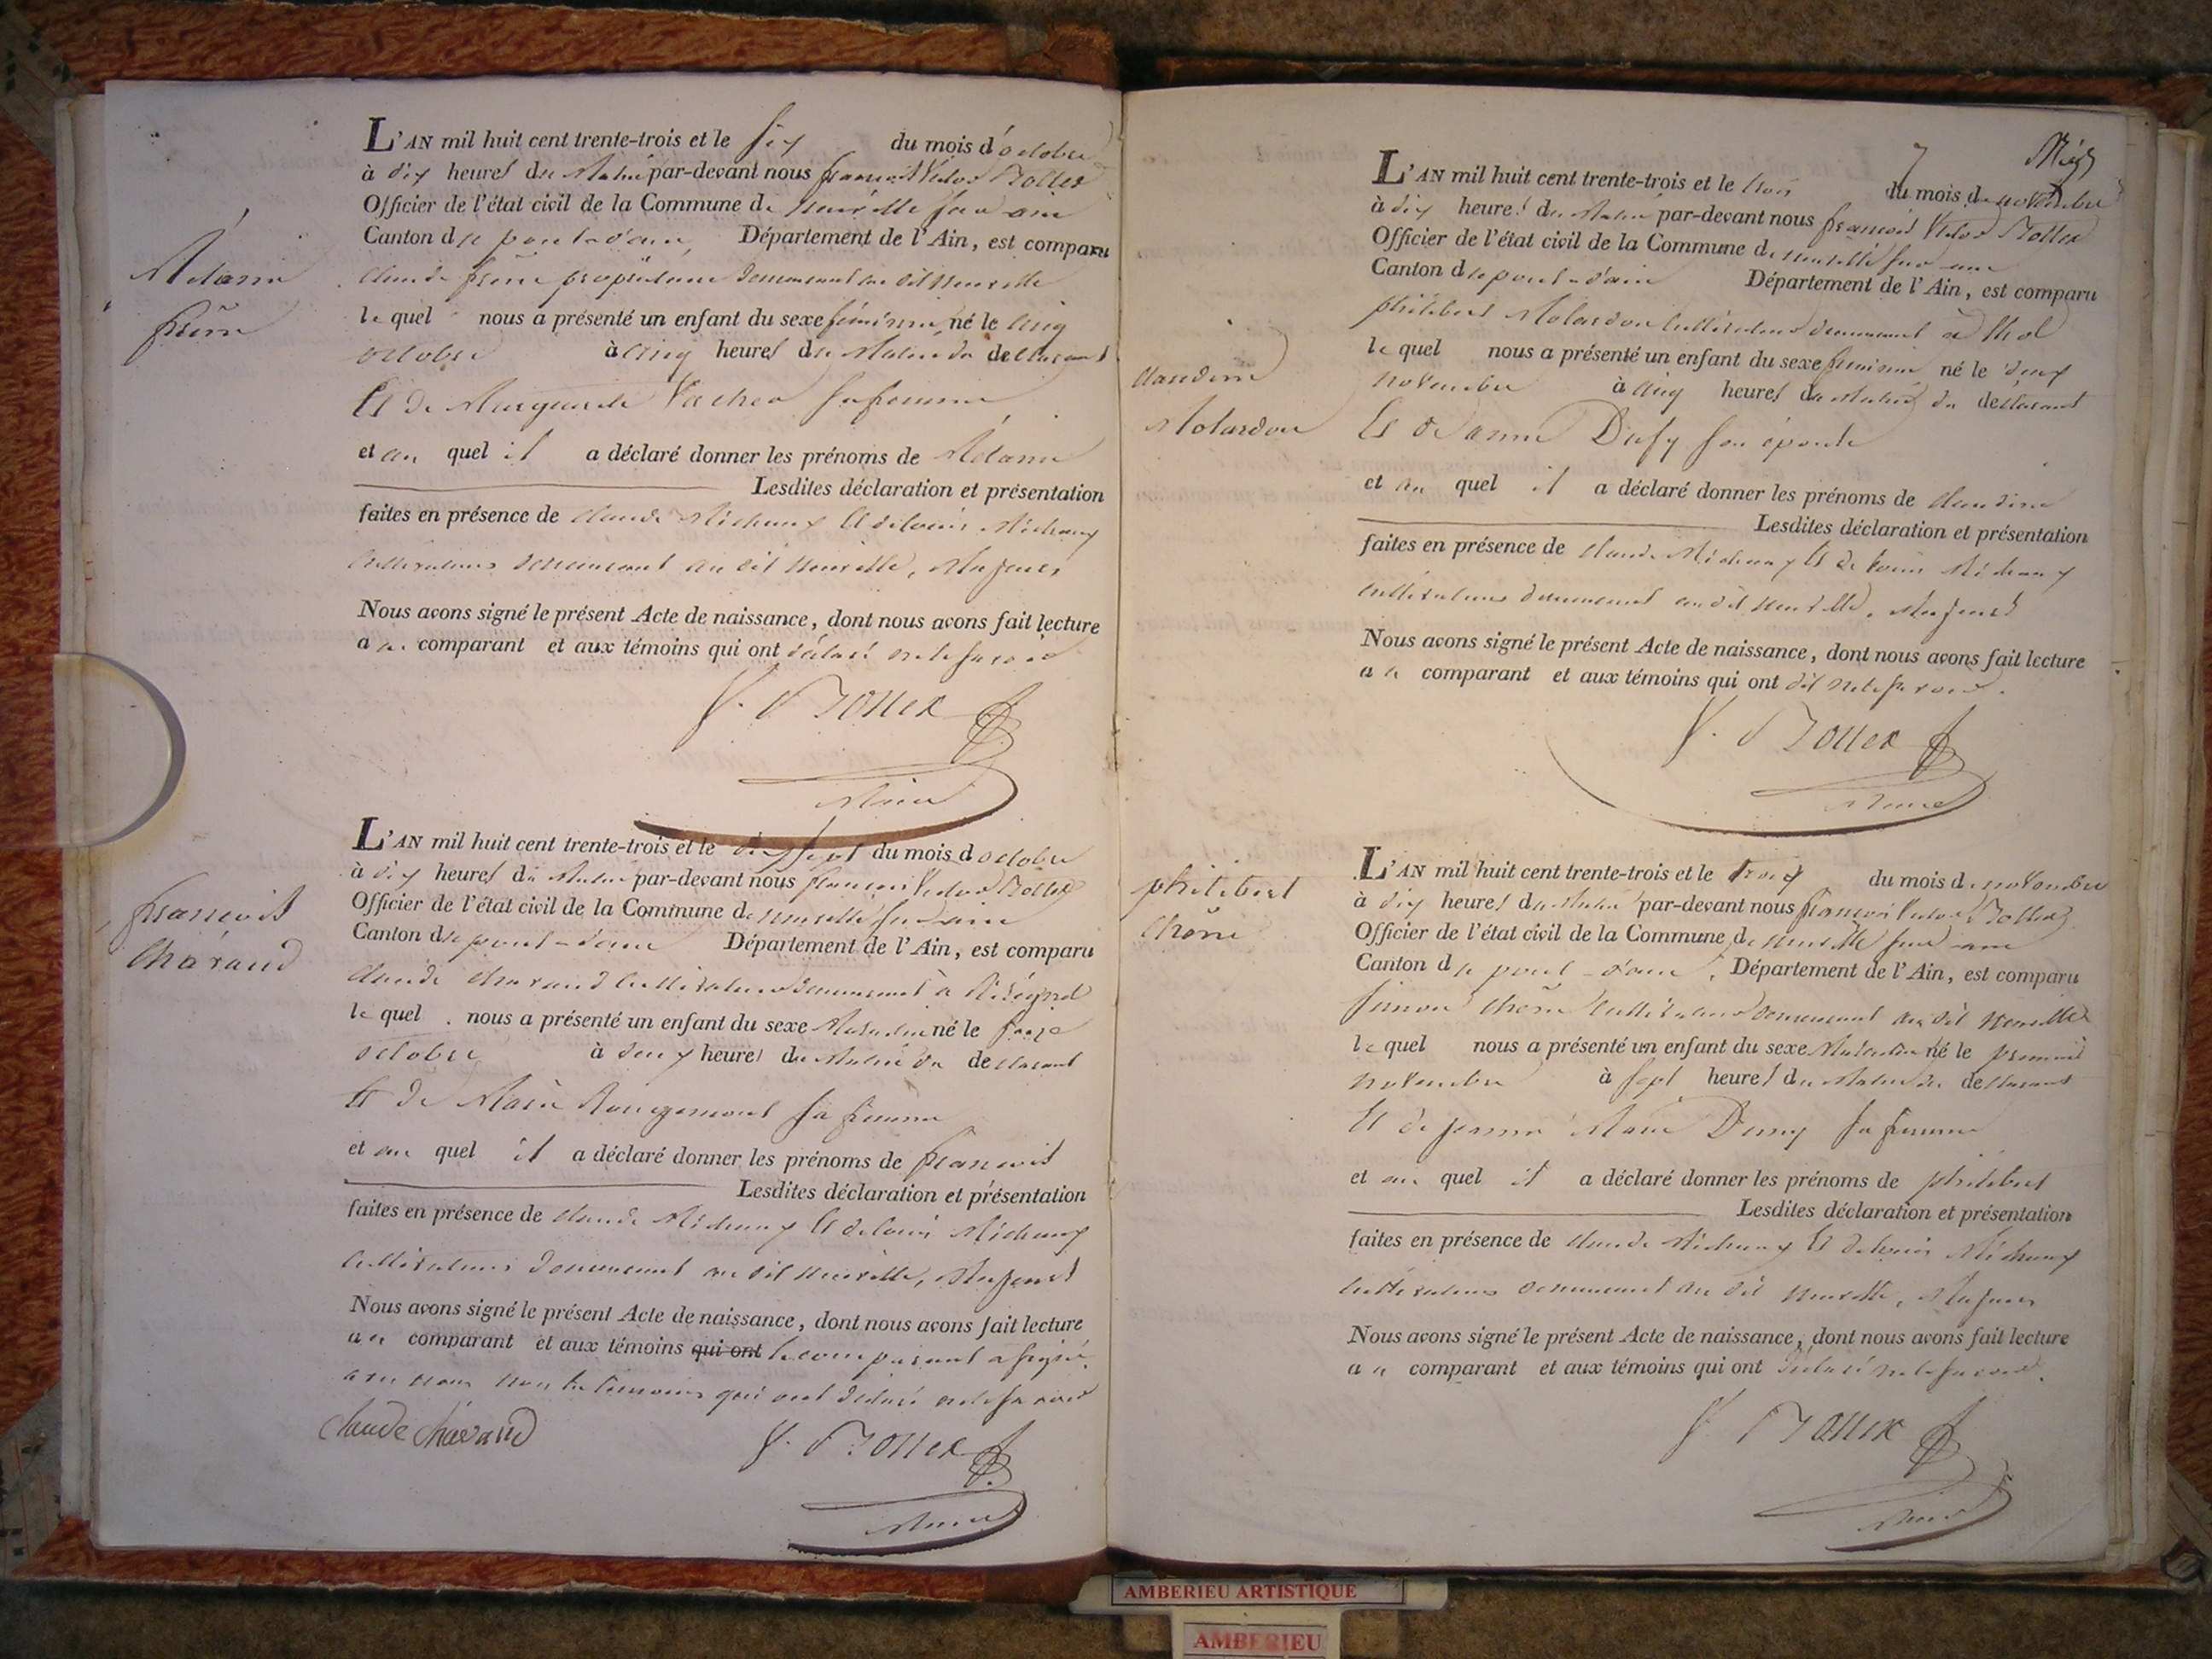 Mélanie
frène
L'AN mil huit cent trente-trois et le six du mois d'octobre
à dix heures du Matin par-devant nous francois Victor Bollex
Officier de l'état civil de la Commune de neuville sur ain
Canton de pont-d'ain, Département de l'Ain, est comparu
claude frène propriétaire demeurant au dit neuville
le quel nous a présenté un enfant du sexe féminin, né le cinq
octobre à cinq heures du Matin du declarant
Et de Marguerite Vacher sa femme
et au quel il a déclaré donner les prénoms de Mélanie
Lesdites déclaration et présentation
faites en présence de claude Michaux Et de louis Michaux
cultivateurs demeurant au dit neuville, Majeurs
Nous avons signé le présent Acte de naissance, dont nous avons fait lecture
au comparant et aux témoins qui ont déclaré ne le savoir
Maire
francois
Chavand
L'AN mil huit cent trente-trois et le dix sept du mois d octobre
à dix heures du Matin par-devant nous francois Victor Bollex
Officier de l'état civil de la Commune de neuville sur ain
Canton de pont-d'ain Département de l'Ain, est comparu
claude chavand cultivateur demeurant à
le quel nous a présenté un enfant du sexe Masculin né le
octobre à deux heures du Matin du declarant
Et de Marie Rougemont sa femme
et au quel il a déclaré donner les prénoms de francois
Lesdites déclaration et présentation
faites en présence de claude Michaux Et de louis Michaux
cultivateurs demeurant au dit neuville, Majeurs
Nous avons signé le présent Acte de naissance, dont nous avons fait lecture
au comparant et aux témoins qui ont le comparant a signé
avec nous non les témoins qui ont déclaré ne le savoir
Claude Chavand
Maire
7
claudine
Molardou
L'AN mil huit cent trente-trois et le trois du mois de novembre
à dix heures du Matin par-devant nous francois Victor Bollex
Officier de l'état civil de la Commune de neuville sur ain
Canton de pont-d'ain Département de l'Ain, est comparu
philibert Molardou cultivateur demeurant à thol
le quel nous a présenté un enfant du sexe feminin né le deux
novembre à cinq heures du Matin du déclarant
Et d'anne Dufy son épouse
et au quel il a déclaré donner les prénoms de claudine
Lesdites déclaration et présentation
faites en présence de claude Michaux Et de louis Michaux
cultivateurs demeurant au dit neuville, Majeurs
Nous avons signé le présent Acte de naissance, dont nous avons fait lecture
au comparant et aux témoins qui ont dit ne le savoir.
Maire
philibert
Chêne
L'AN mil huit cent trente-trois et le trois du mois de novembre
à dix heures du Matin par-devant nous francois Victor Bollex
Officier de l'état civil de la Commune de neuville sur ain
Canton de pont-d'ain, Département de l'Ain, est comparu
simon chêne cultivateur demeurant au dit neuville
le quel nous a présenté un enfant du sexe Masculin né le premier
novembre à sept heures du Matin du declarant
Et de jeanne Marie sa femme
et au quel il a déclaré donner les prénoms de philibert
Lesdites déclaration et présentation
faites en présence de claude Michaux Et de louis Michaux
cultivateurs demeurant au dit neuville, Majeurs
Nous avons signé le présent Acte de naissance, dont nous avons fait lecture
au comparant et aux témoins qui ont déclaré ne le savoir.
Maire
AMBERIEU ARTISTIQUE
AMBERIEU